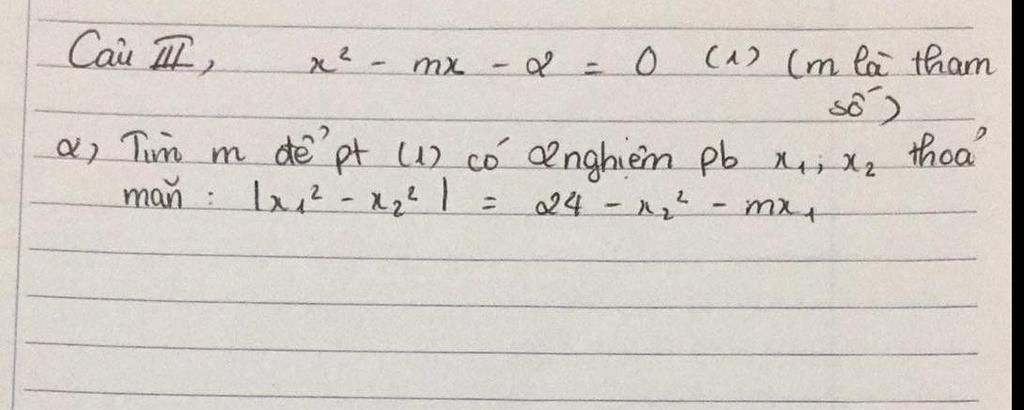 Câu III, x² - mx - 2 = 0 (1) (m là tham
số)
2, Tìm m để pt (1) có 2 nghiệm pb x₁; x₂ thoả
mãn : |x₁² - x₂²| = 24 - x₂² - mx₁